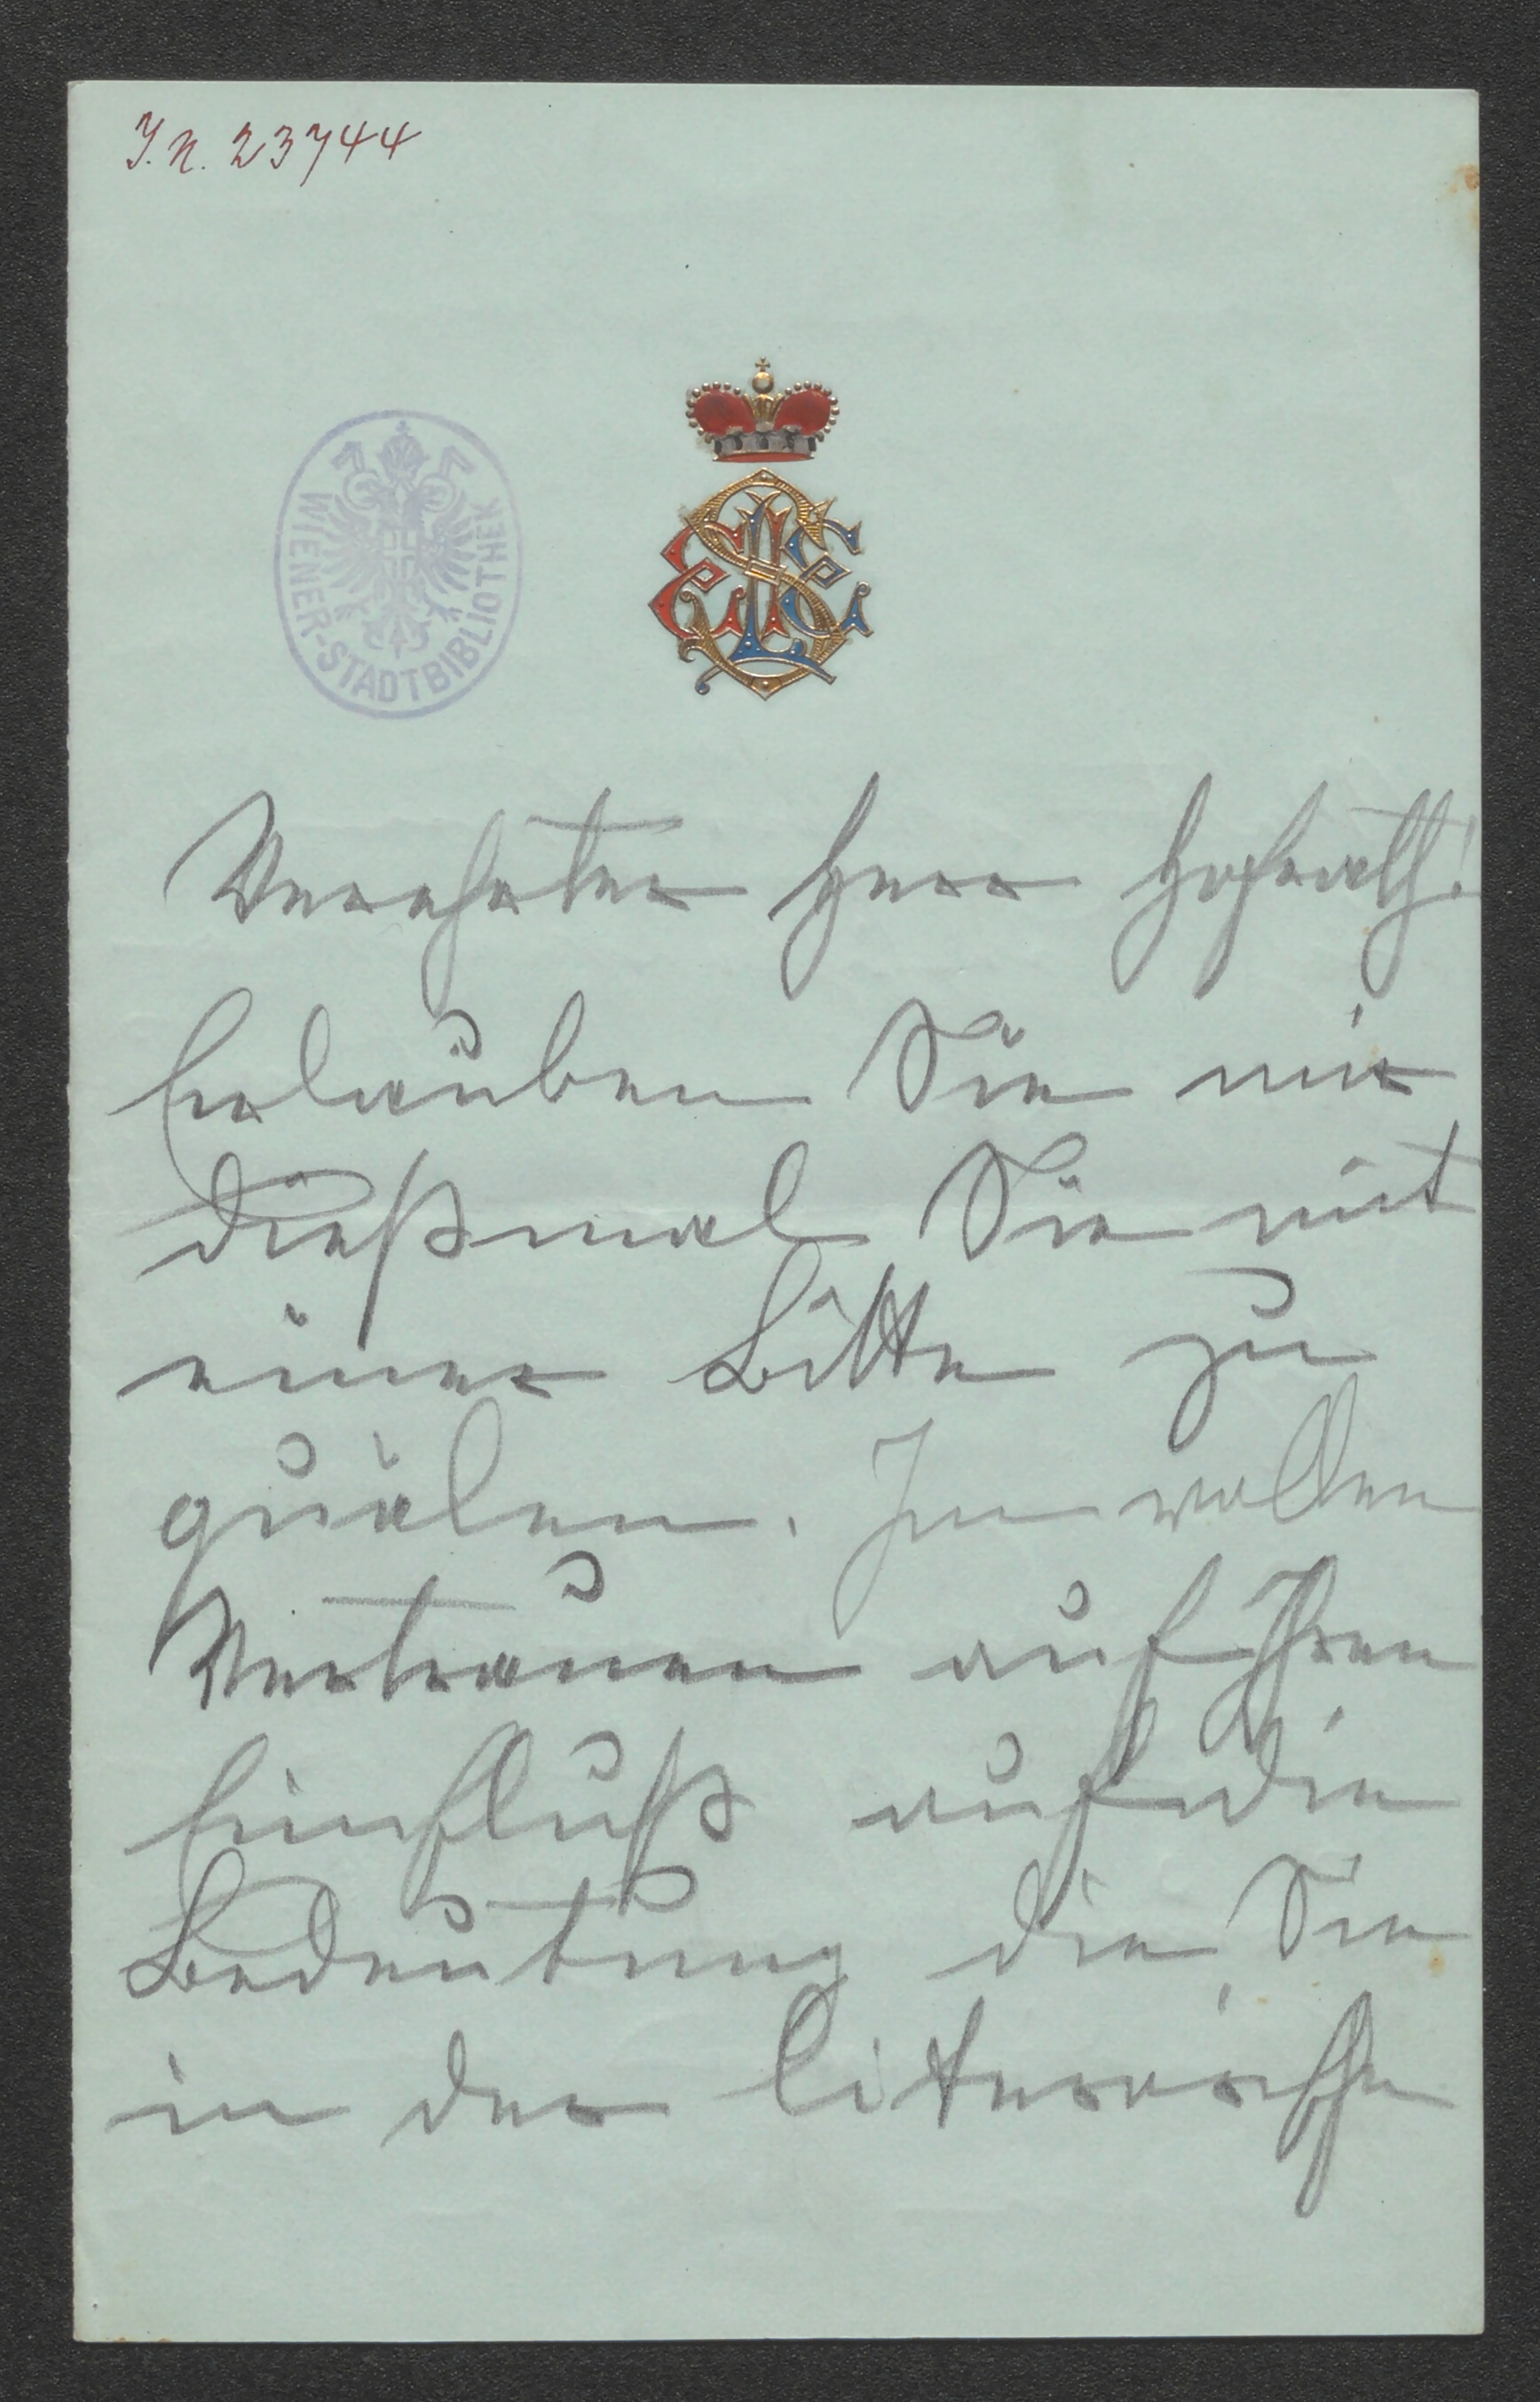 J.N. 23744
WIENER-STADTBIBLIOTHEK
Verehrter Herr Hofrath!
Erlauben Sie mir
dießmal Sie mit
einer Bitte zu
quälen. Im vollen
Vertrauen auf Ihren
Einfluß auf die
Bedeutung die Sie
in der literarische